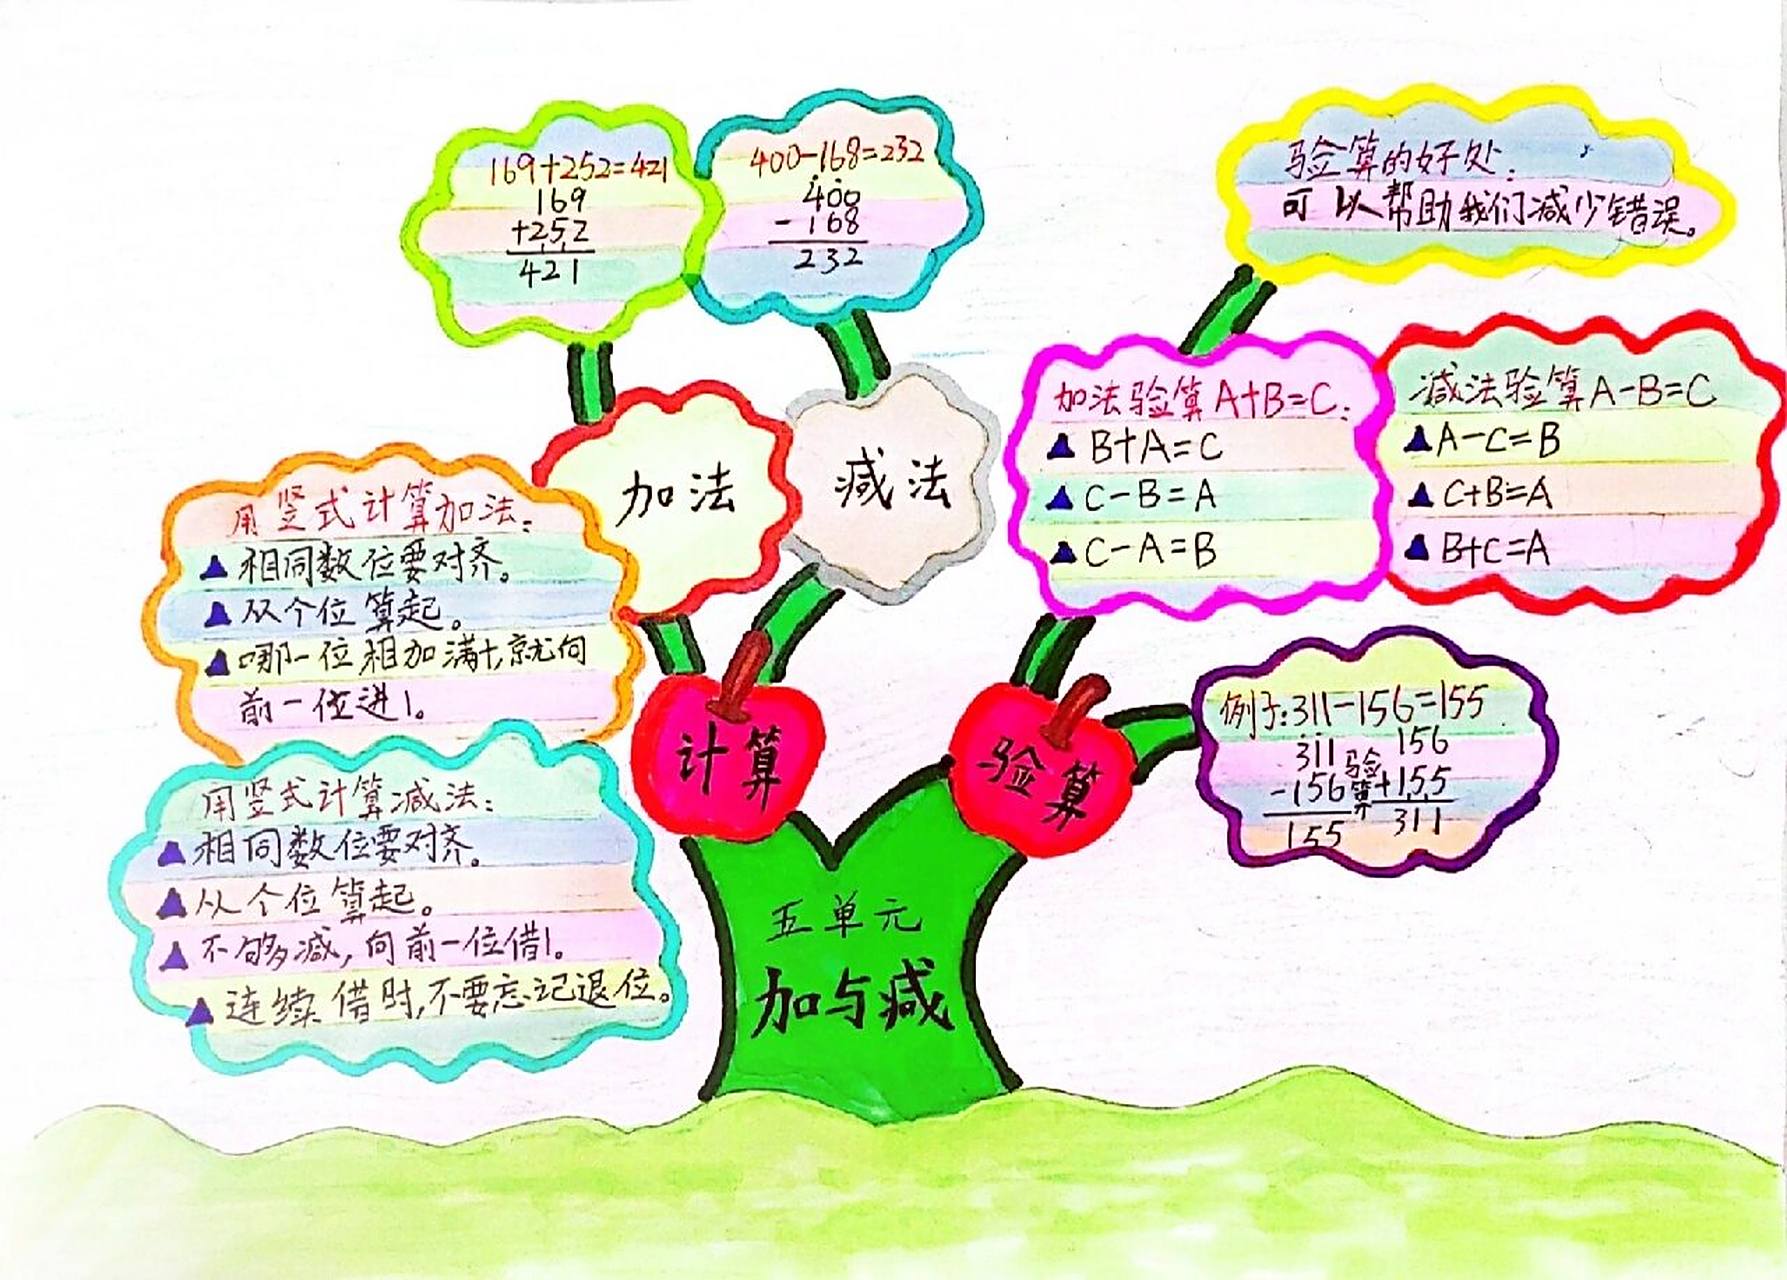 169+252=421
169
+252
421
400-168=232
400
-168
232
验算的好处:
可以帮助我们减少错误。
加法
减法
加法验算A+B=C:
▲B+A=C
▲C-B=A
▲C-A=B
减法验算A-B=C
▲A-C=B
▲C+B=A
▲B+C=A
用竖式计算加法:
▲相同数位要对齐。
▲从个位算起。
▲哪一位相加满十,就向
前一位进1。
计算
验算
例子:311-156=155
311
-156
155
验
算
156
+155
311
用竖式计算减法:
▲相同数位要对齐。
▲从个位算起。
▲不够减,向前一位借1。
▲连续借时,不要忘记退位。
五单元
加与减